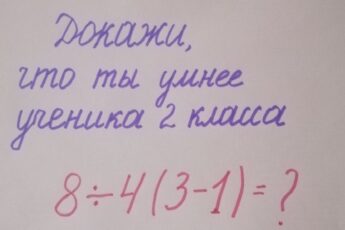 Докажи,
что ты умнее
ученика 2 класса
8÷4(3-1)=?